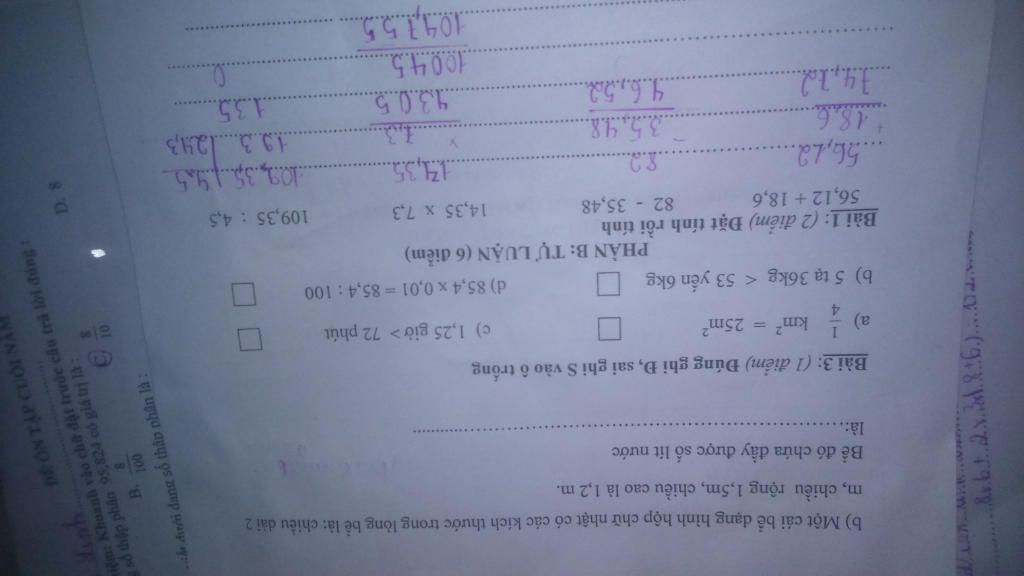 b) Một cái bể dạng hình hộp chữ nhật có các kích thước trong lòng bể là: chiều dài 2
m, chiều rộng 1,5m, chiều cao là 1,2 m.
Bể đó chứa đầy được số lít nước
là:
Bài 3: (1 điểm) Đúng ghi Đ, sai ghi S vào ô trống
a) 1/4 km² = 25m² c) 1,25 giờ > 72 phút
b) 5 tạ 36kg < 53 yến 6kg d) 85,4 x 0,01 = 85,4 : 100
PHẦN B: TỰ LUẬN (6 điểm)
Bài 1: (2 điểm) Đặt tính rồi tính
56,12 + 18,6 82 - 35,48 14,35 x 7,3 109,35 : 4,5
56,12 82 14,35 109,35 4,5
+ 18,6 - 35,48 x 7,3 19 3 24,3
74,72 46,52 4305 135
10045 0
104,755
ĐỀ ÔN TẬP CUỐI NĂM
Khoanh vào chữ đặt trước câu trả lời đúng :
số thập phân 95,824 có giá trị là :
B. 8/100 C. 8/10 D. 8
dưới dạng số thập phân là :